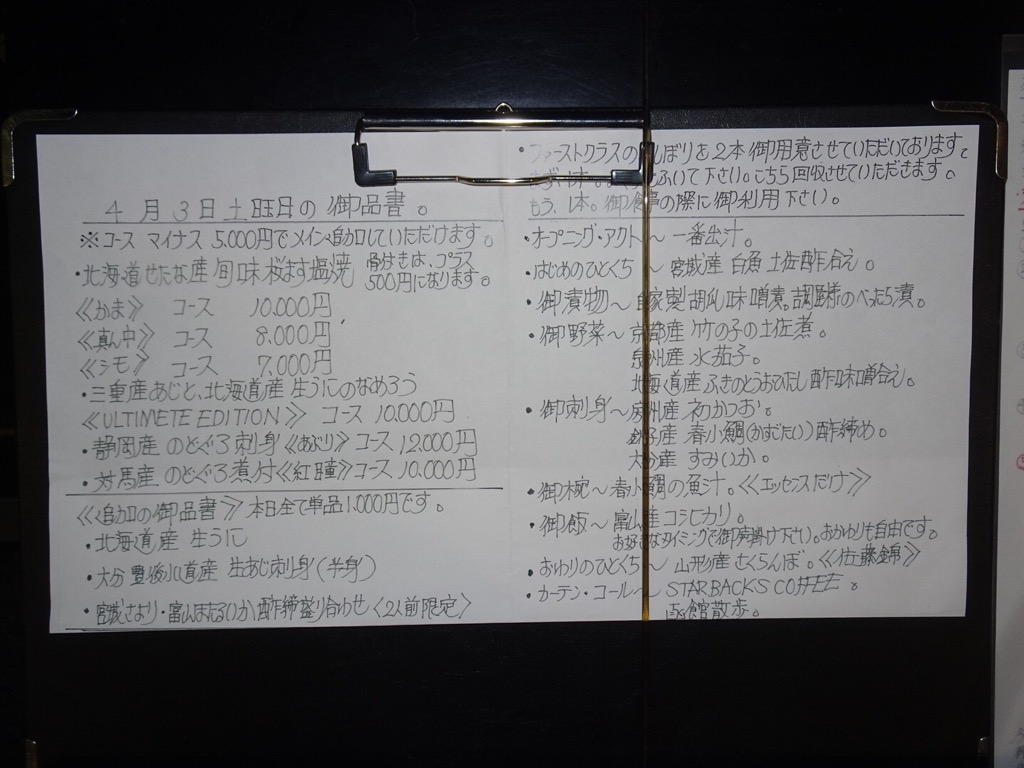 4月3日土曜日の御品書。
※コース マイナス5.000円でメインへ追加していただけます。
・北海道せたな産 旬味桜ます塩焼 骨付きは、プラス
500円になります。
《かま》 コース 10.000円
《真ん中》 コース 8.000円
《シモ》 コース 7.000円
・三重産あじと、北海道産 生うにのなめろう
《ULTIMETE EDITION》 コース 10.000円
・静岡産 のどぐろ刺身《あぶり》コース 12.000円
・対馬産 のどぐろ煮付《紅瞳》コース 10.000円
《追加の御品書》本日全て単品1.000円です。
・北海道産 生うに
・大分 豊後水道産 生あじ刺身(半身)
・宮城さより・富山ほたるいか 酢締盛り合わせ〈2人前限定〉
・ファーストクラスのおしぼりを2本御用意させていただいております。
ふいて下さい。こちら回収させていただきます。
もう、1本。御食事の際に御利用下さい。
・オープニング・アクト〜 一番出汁。
・はじめのひとくち 〜 宮城産 白魚 土佐酢合え。
・御漬物〜自家製 胡瓜味噌煮、調理師のべったら漬。
・御野菜〜 京都産 竹の子の土佐煮。
泉州産 水茄子。
北海道産ふきのとうおひたし 酢味噌合え。
・御刺身〜房州産 初かつお。
銚子産 春小鯛(かすごたい)酢締め。
大分産 すみいか。
・御椀〜春小鯛の魚汁。《エッセンスだけ》
・御飯〜 富山産 コシヒカリ。
お好きなタイミングで御声掛け下さい。おかわりも自由です。
・おわりのひとくち〜 山形産 さくらんぼ。《佐藤錦》
・カーテン・コール〜 STARBACKS COFFEE
函館散歩。